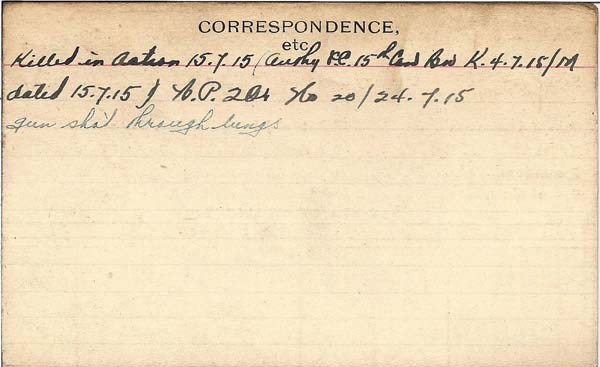 CORRESPONDENCE,
etc
Killed in Action 15.7.15 (Authy 15th Can Bn K.4.7.15/M
dated 15.7.15) No 20/24.7.15
gun shot through lungs